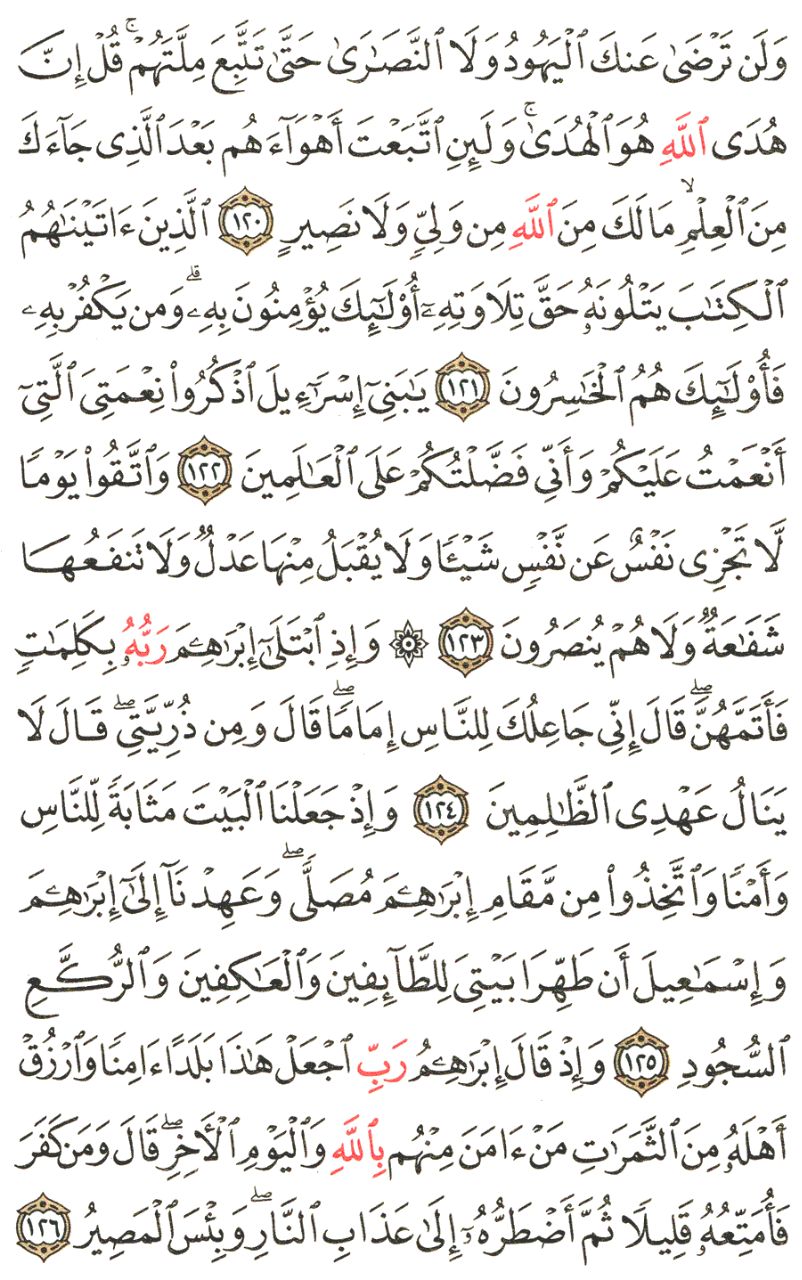 وَلَن تَرْضَىٰ عَنكَ ٱلْيَهُودُ وَلَا ٱلنَّصَٰرَىٰ حَتَّىٰ تَتَّبِعَ مِلَّتَهُمْ ۗ قُلْ إِنَّ
هُدَى ٱللَّهِ هُوَ ٱلْهُدَىٰ ۗ وَلَئِنِ ٱتَّبَعْتَ أَهْوَآءَهُم بَعْدَ ٱلَّذِى جَآءَكَ
مِنَ ٱلْعِلْمِ ۙ مَا لَكَ مِنَ ٱللَّهِ مِن وَلِىٍّ وَلَا نَصِيرٍ ١٢٠ ٱلَّذِينَ ءَاتَيْنَٰهُمُ
ٱلْكِتَٰبَ يَتْلُونَهُۥ حَقَّ تِلَاوَتِهِۦٓ أُو۟لَٰٓئِكَ يُؤْمِنُونَ بِهِۦ ۗ وَمَن يَكْفُرْ بِهِۦ
فَأُو۟لَٰٓئِكَ هُمُ ٱلْخَٰسِرُونَ ١٢١ يَٰبَنِىٓ إِسْرَٰٓءِيلَ ٱذْكُرُوا۟ نِعْمَتِىَ ٱلَّتِىٓ
أَنْعَمْتُ عَلَيْكُمْ وَأَنِّى فَضَّلْتُكُمْ عَلَى ٱلْعَٰلَمِينَ ١٢٢ وَٱتَّقُوا۟ يَوْمًا
لَّا تَجْزِى نَفْسٌ عَن نَّفْسٍ شَيْـًٔا وَلَا يُقْبَلُ مِنْهَا عَدْلٌ وَلَا تَنفَعُهَا
شَفَٰعَةٌ وَلَا هُمْ يُنصَرُونَ ١٢٣ ۞ وَإِذِ ٱبْتَلَىٰٓ إِبْرَٰهِـۧمَ رَبُّهُۥ بِكَلِمَٰتٍ
فَأَتَمَّهُنَّ ۖ قَالَ إِنِّى جَاعِلُكَ لِلنَّاسِ إِمَامًا ۖ قَالَ وَمِن ذُرِّيَّتِى ۖ قَالَ لَا
يَنَالُ عَهْدِى ٱلظَّٰلِمِينَ ١٢٤ وَإِذْ جَعَلْنَا ٱلْبَيْتَ مَثَابَةً لِّلنَّاسِ
وَأَمْنًا وَٱتَّخِذُوا۟ مِن مَّقَامِ إِبْرَٰهِـۧمَ مُصَلًّى ۖ وَعَهِدْنَآ إِلَىٰٓ إِبْرَٰهِـۧمَ
وَإِسْمَٰعِيلَ أَن طَهِّرَا بَيْتِىَ لِلطَّآئِفِينَ وَٱلْعَٰكِفِينَ وَٱلرُّكَّعِ
ٱلسُّجُودِ ١٢٥ وَإِذْ قَالَ إِبْرَٰهِـۧمُ رَبِّ ٱجْعَلْ هَٰذَا بَلَدًا ءَامِنًا وَٱرْزُقْ
أَهْلَهُۥ مِنَ ٱلثَّمَرَٰتِ مَنْ ءَامَنَ مِنْهُم بِٱللَّهِ وَٱلْيَوْمِ ٱلْـَٔاخِرِ ۖ قَالَ وَمَن كَفَرَ
فَأُمَتِّعُهُۥ قَلِيلًا ثُمَّ أَضْطَرُّهُۥٓ إِلَىٰ عَذَابِ ٱلنَّارِ ۖ وَبِئْسَ ٱلْمَصِيرُ ١٢٦